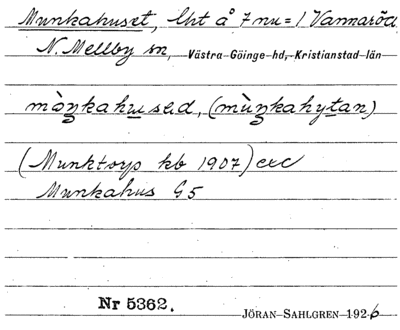 Munkahuset, lht å 7 nu = 1 Vannaröd
N. Mellby sn, Västra Göinge hd, Kristianstad län
mòŋkahused, (mùŋkahytan)
(Munktorp kb 1907) etc
Munkahus G5
Nr 5362.
JÖRAN SAHLGREN 1926